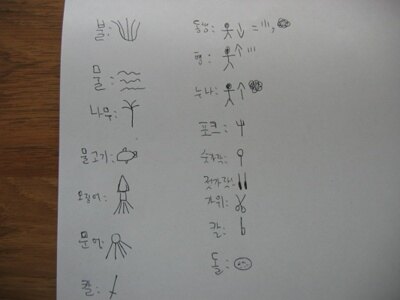 불:
물:
나무:
물고기:
오징어:
문어:
칼:
동생: ↓ =
형: ↑
누나: ↑
포크:
숫가락:
젓가락:
가위:
칼:
돌: